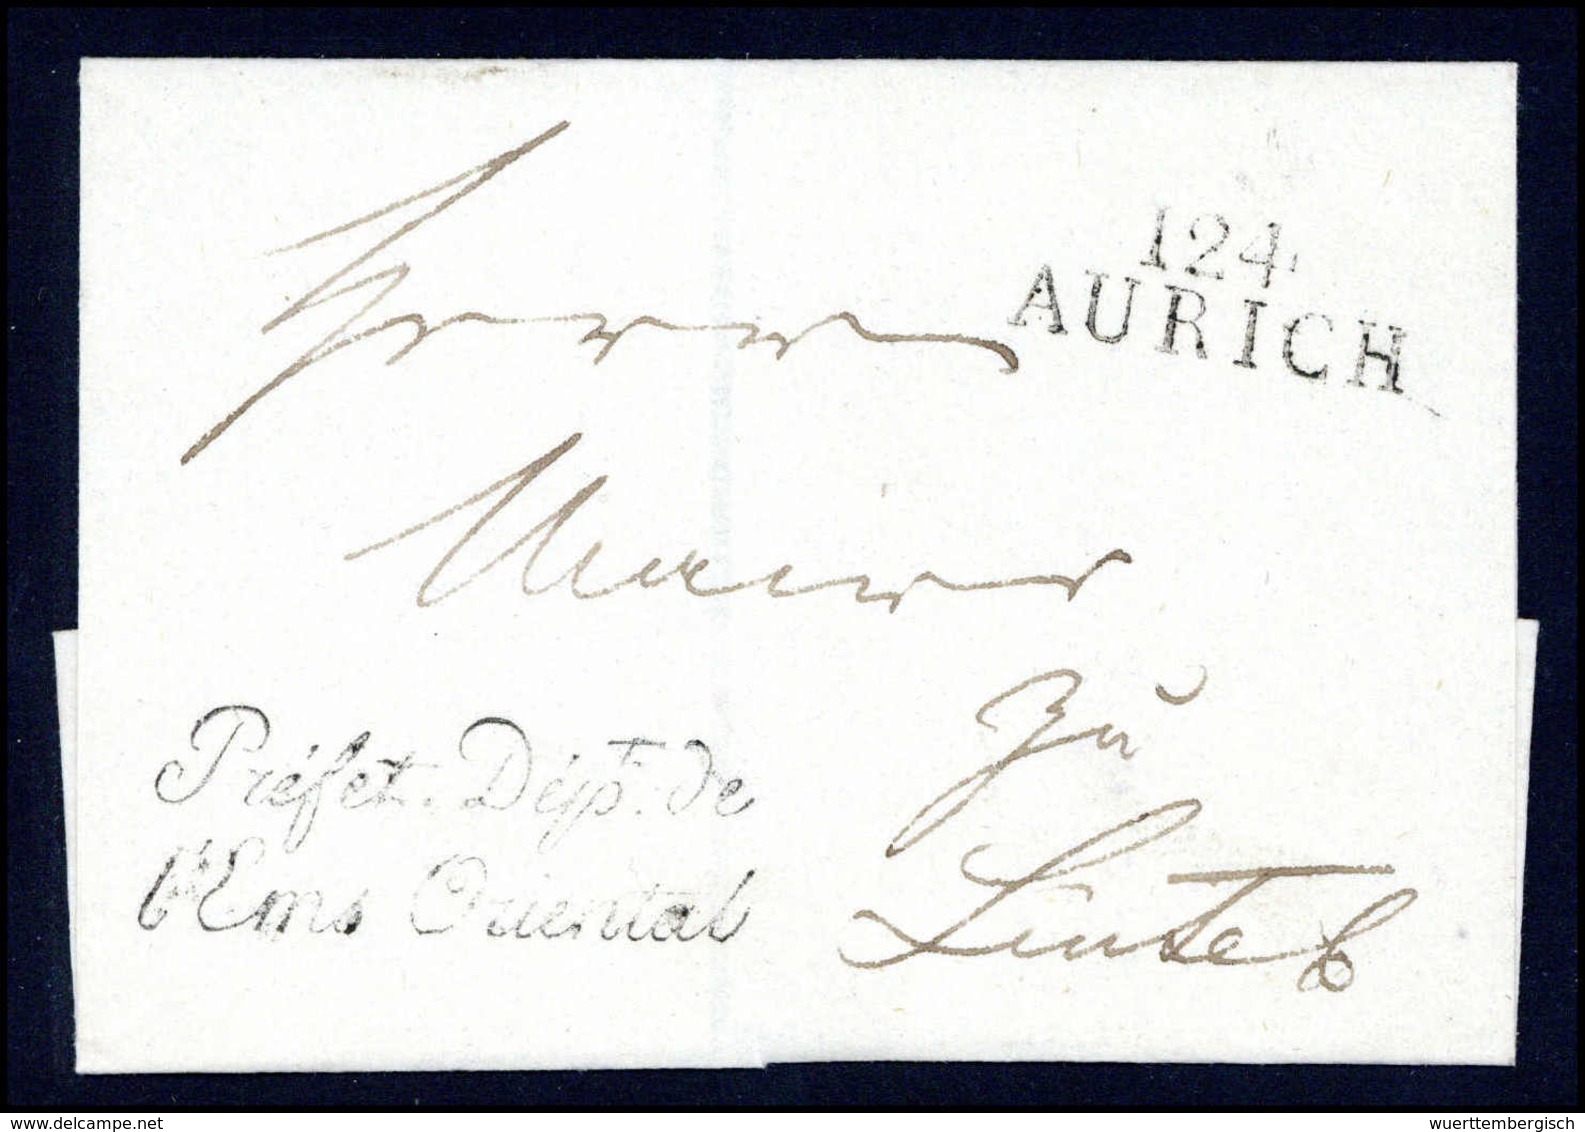 124
AURICH
Herrn
Maire
zu
Préfet. Dépt. de
l'Ems Oriental
delcampe.net
wuerttembergisch